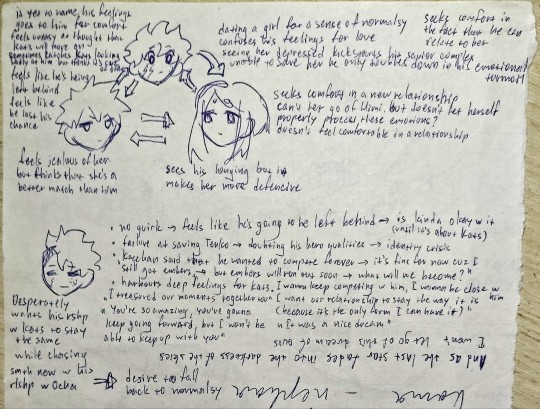 is yet to name, his feelings
goes to him for comfort
feels uneasy at thought that
Kats will have gf
sometimes catches Kats looking
sadly at him but thinks it's cuz
feels like he's being
left behind
feels like
he lost his
chance
feels jealous of her
but thinks that she's a
better match than him
dating a girl for a sense of normalsy
confuses his feelings for love
seeing her depressed kickstarts his savior complex
unable to save her he only doubles down in his emotional
turmoil
seeks comfort in
the fact that he can
relate to her
seeks comfort in a new relationship
can't let go of Himi but doesn't let herself
properly process these emotions?
doesn't feel comfortable in a relationship
sees his longing but it
makes her more defencive
• no quirk → feels like he's going to be left behind → is kinda okay w it
(until it's about Kats)
• failure at saving Tenko → doubting his hero qualities → identity crisis
• Kacchan said that he wanted to compete forever → it's fine for now cuz I
still got embers → but embers will run out soon → what will we become?"
• harbours deep feelings for Kats. I wanna keep competing w him, I wanna be close w
him
"I treasured our moments together too" I want our relationship to stay the way it is
"You're so amazing, you're gonna
keep going forward, but I won't be
able to keep up with you"
(because it's the only form I can have it)"
"It was a nice dream"
Desperately
wants his rshp
w Kats to stay
the same
while chasing
smth new w his
rlshp w Ocha
⇒ desire to fall
back to normalsy
I won't let go of this dream of ours
And as the last star fades into the darkness of the skies